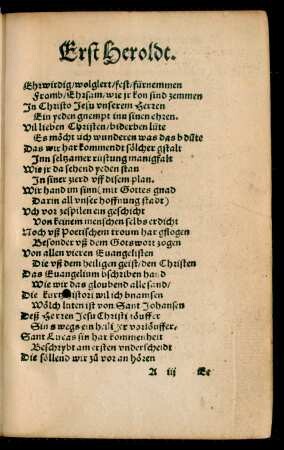 Erst Heroldt.
Ehrwirdig/wolglert/fest/fürnemmen
Fromb/Ehrsam/wie jr kon sind zemmen
In Christo Jesu vnserem Herren
Ein yeden gnempt inn sinen ehren.
Vil lieben Christen/biderben lüte
Es möcht üch wunderen was das bdüte
Das wir har kommendt sölcher gstalt
Inn seltzamer rüstung manigfalt
Wie jr da sehend yeden stan
In siner zierd vff disem plan.
Wir hand im sinn (mit Gottes gnad
Darin all vnser hoffnung stadt)
Vch vor zespilen ein geschicht
Von keinem menschen selbs erdicht
Noch vß Poetischem troum har gflogen
Besonder vß dem Gotswort zogen
Von allen vieren Euangelisten
Die vß dem heiligen geist/den Christen
Das Euangelium bschriben hand
Wie wir das gloubend alle sand/
Die kurtz histori wil ich bnamsen
Wölch luten ist von Sant Johansen
Deß Herren Jesu Christi töuffer
Sins wegs ein heiliger vorlöuffer.
Sant Lucas sin har kommenheit
Beschrybt am ersten vnderscheidt
Die söllend wir zů vor an hören
A iij Et